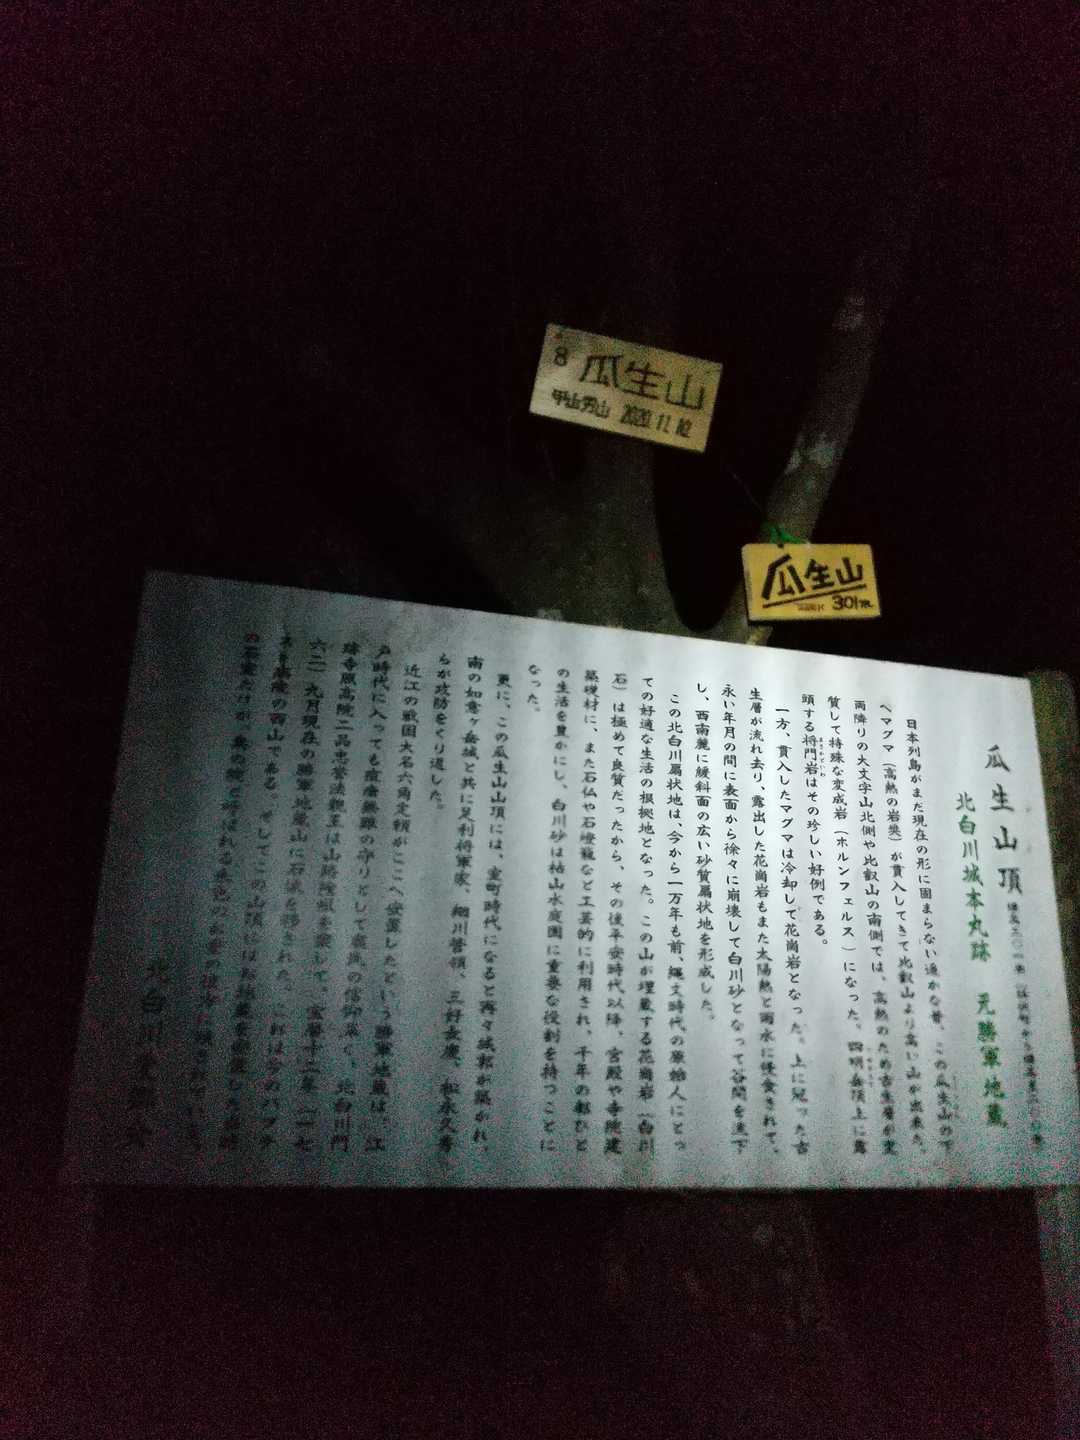 8 瓜生山
2020.11.12
瓜生山
301m
瓜生山頂
北白川城本丸跡 元勝軍地蔵
日本列島がまだ現在の形に固まらない遥かな昔、この瓜生山の下
へマグマ（高熱の岩奬）が貫入してきて比叡山より高い山が出来た。
両隣りの大文字山北側や比叡山の南側では、高熱のため古生層が変
質して特殊な変成岩（ホルンフェルス）になった。四明岳頂上に露
頭する将門岩はその珍しい好例である。
一方、貫入したマグマは冷却して花崗岩となった。上に冠った古
生層が流れ去り、露出した花崗岩もまた太陽熱と雨水に侵食されて、
永い年月の間に表面から徐々に崩壊して白川砂となって谷間を流下
し、西南麓に緩斜面の広い砂質扇状地を形成した。
この北白川扇状地は、今から一万年も前、縄文時代の原始人にとっ
ての好適な生活の根拠地となった。この山が埋蔵する花崗岩（白川
石）は極めて良質だったから、その後平安時代以降、宮殿や寺院建
築礎材に、また石仏や石燈籠など工芸的に利用され、千年の都びと
の生活を豊かにし、白川砂は枯山水庭園に重要な役割を持つことに
なった。
更に、この瓜生山山頂には、室町時代になると再々城郭が築かれ、
南の如意ヶ岳城と共に足利将軍家、細川管領、三好長慶、松永久秀
らが攻防をくり返した。
近江の戦国大名六角定頼がここへ安置したという勝軍地蔵は、江
戸時代に入っても
の信仰
く、北白川門
跡寺照高院二品忠誉法親王は山路険
を
して、宝暦十二年（一七
六二）九月現在の勝軍地蔵山に石
を移された。これは今のバプテ
の西山である。そしてこの山頂には
北白川